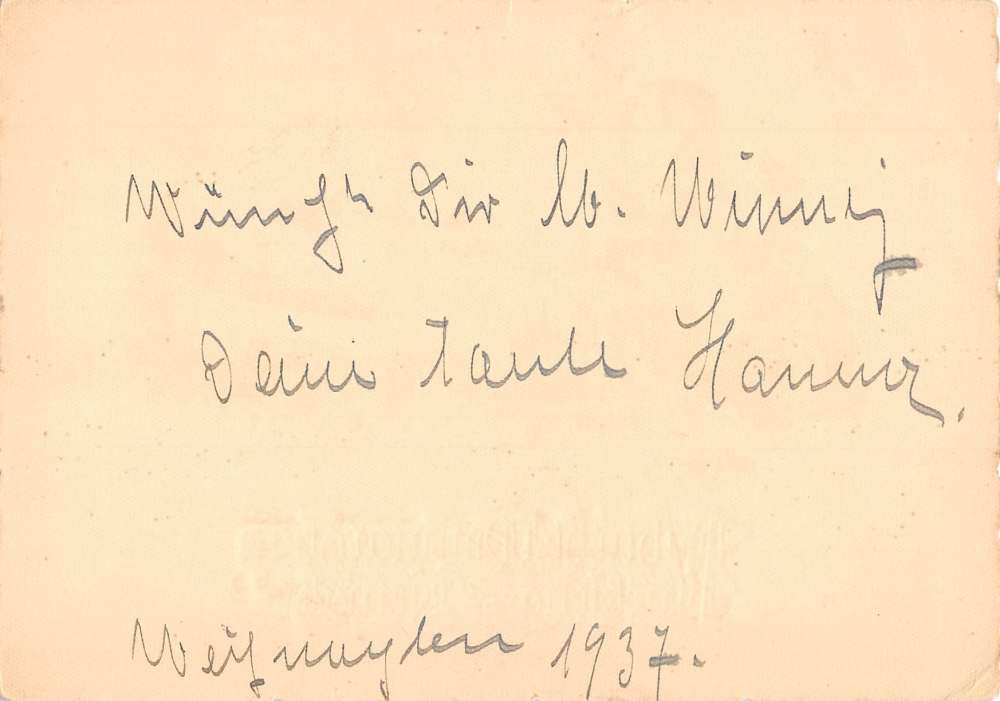 Wünscht Dir lb. Winni
Deine Tante Hanna.
Weihnachten 1937.